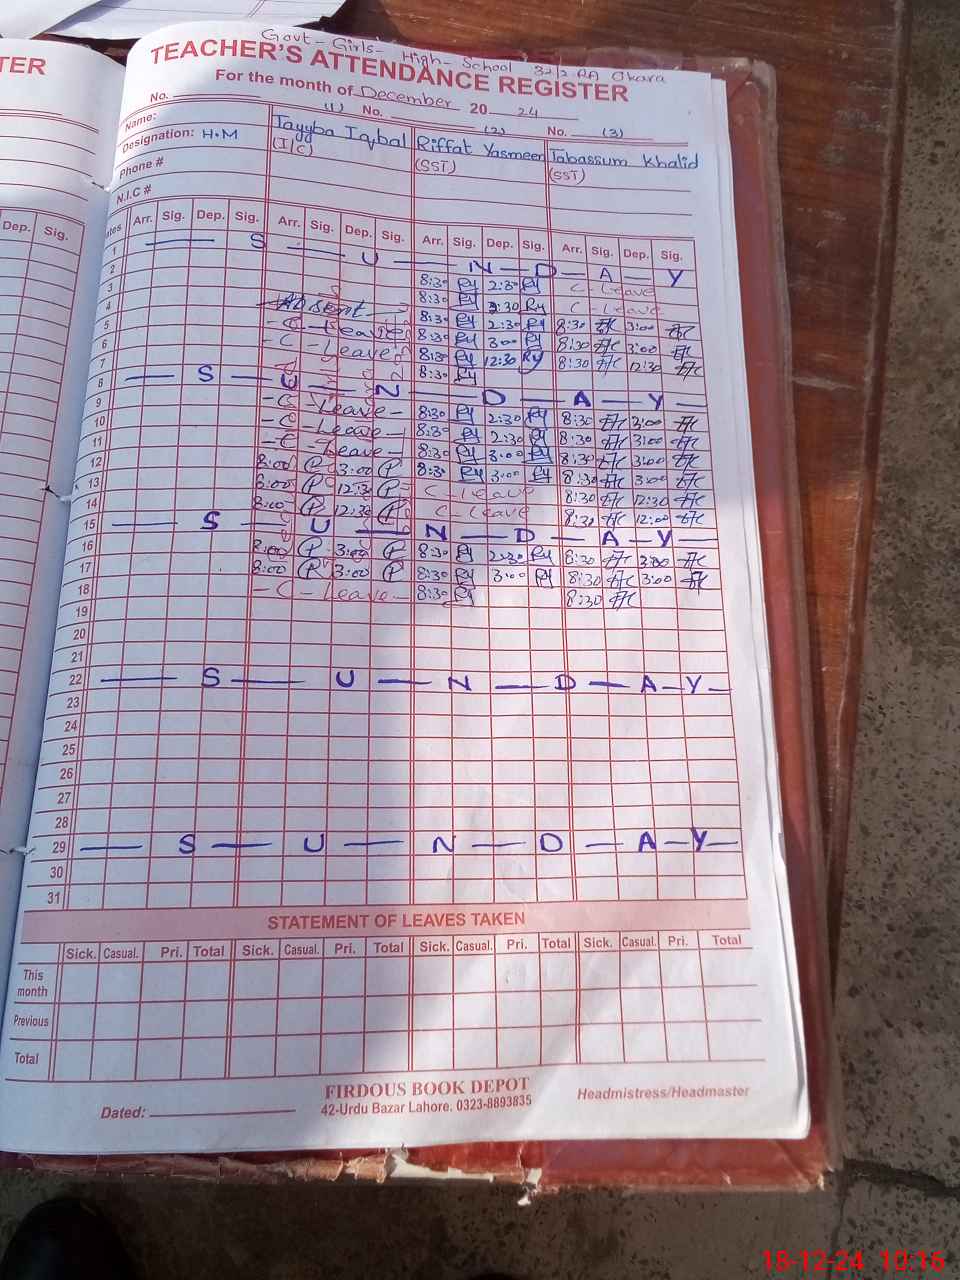 TER
Dep. Sig.
Govt-Girls-High-School 32/2 RA Okara
TEACHER'S ATTENDANCE REGISTER
For the month of December 2024
No. (1) No. (2) No. (3)
Name: Tayyba Iqbal Riffat Yasmeen Tabassum Khalid
Designation: H.M (I/C) (SST) (SST)
Phone #
N.I.C #
Arr. Sig. Dep. Sig. Arr. Sig. Dep. Sig. Arr. Sig. Dep. Sig. Arr. Sig. Dep. Sig.
1 S U N D A Y
2 8:30 Ry 2:30 Ry C-Leave
3 8:30 Ry 2:30 Ry C-Leave
4 Absent 8:30 Ry 2:30 Ry 8:30 3:00
5 -C-Leave 8:30 Ry 3:00 Ry 8:30 3:00
6 -C-Leave 8:30 Ry 12:30 Ry 8:30 12:30
7 8:30 Ry
8 S U N D A Y
9 -C-Leave- 8:30 Ry 2:30 Ry 8:30 3:00
10 -C-Leave- 8:30 Ry 2:30 Ry 8:30 3:00
11 -C-Leave- 8:30 Ry 3:00 Ry 8:30 3:00
12 8:00 3:00 8:30 Ry 3:00 Ry 8:30 3:00
13 8:00 12:30 C-Leave 8:30 12:30
14 8:00 12:30 C-Leave 8:30 12:00
15 S U N D A Y
16 8:00 3:00 8:30 Ry 2:30 Ry 8:30 3:00
17 8:00 3:00 8:30 Ry 3:00 Ry 8:30 3:00
18 -C-Leave- 8:30 Ry 8:30
19
20
21
22 S U N D A Y
23
24
25
26
27
28
29 S U N D A Y
30
31
STATEMENT OF LEAVES TAKEN
Sick. Casual. Pri. Total Sick. Casual. Pri. Total Sick. Casual. Pri. Total Sick. Casual. Pri. Total
This month
Previous
Total
FIRDOUS BOOK DEPOT
Dated: 42-Urdu Bazar Lahore. 0323-8893835 Headmistress/Headmaster
18-12-24 10:16